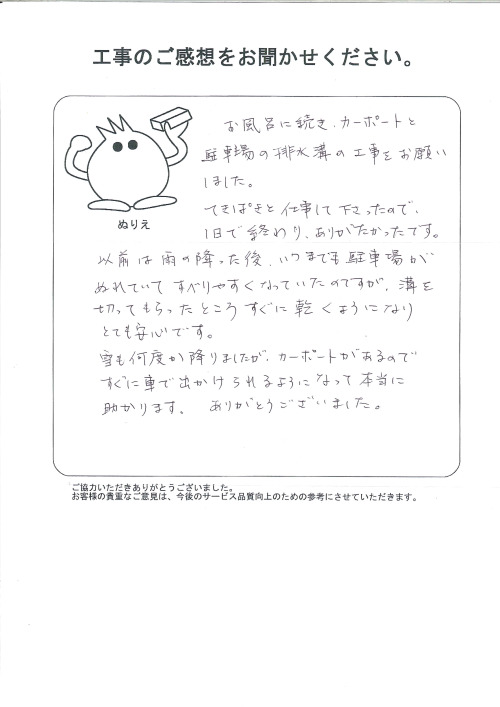 工事のご感想をお聞かせください。
お風呂に続き、カーポートと
駐車場の排水溝の工事をお願い
しました。
てきぱきと仕事して下さったので、
1日で終わり、ありがたかったです。
ぬりえ
以前は雨の降った後、いつまでも駐車場が
ぬれていてすべりやすくなっていたのですが、溝を
切ってもらったところすぐに乾くようになり
とても安心です。
雪も何度か降りましたが、カーポートがあるので
すぐに車で出かけられるようになって本当に
助かります。 ありがとうございました。
ご協力いただきありがとうございました。
お客様の貴重なご意見は、今後のサービス品質向上のための参考にさせていただきます。